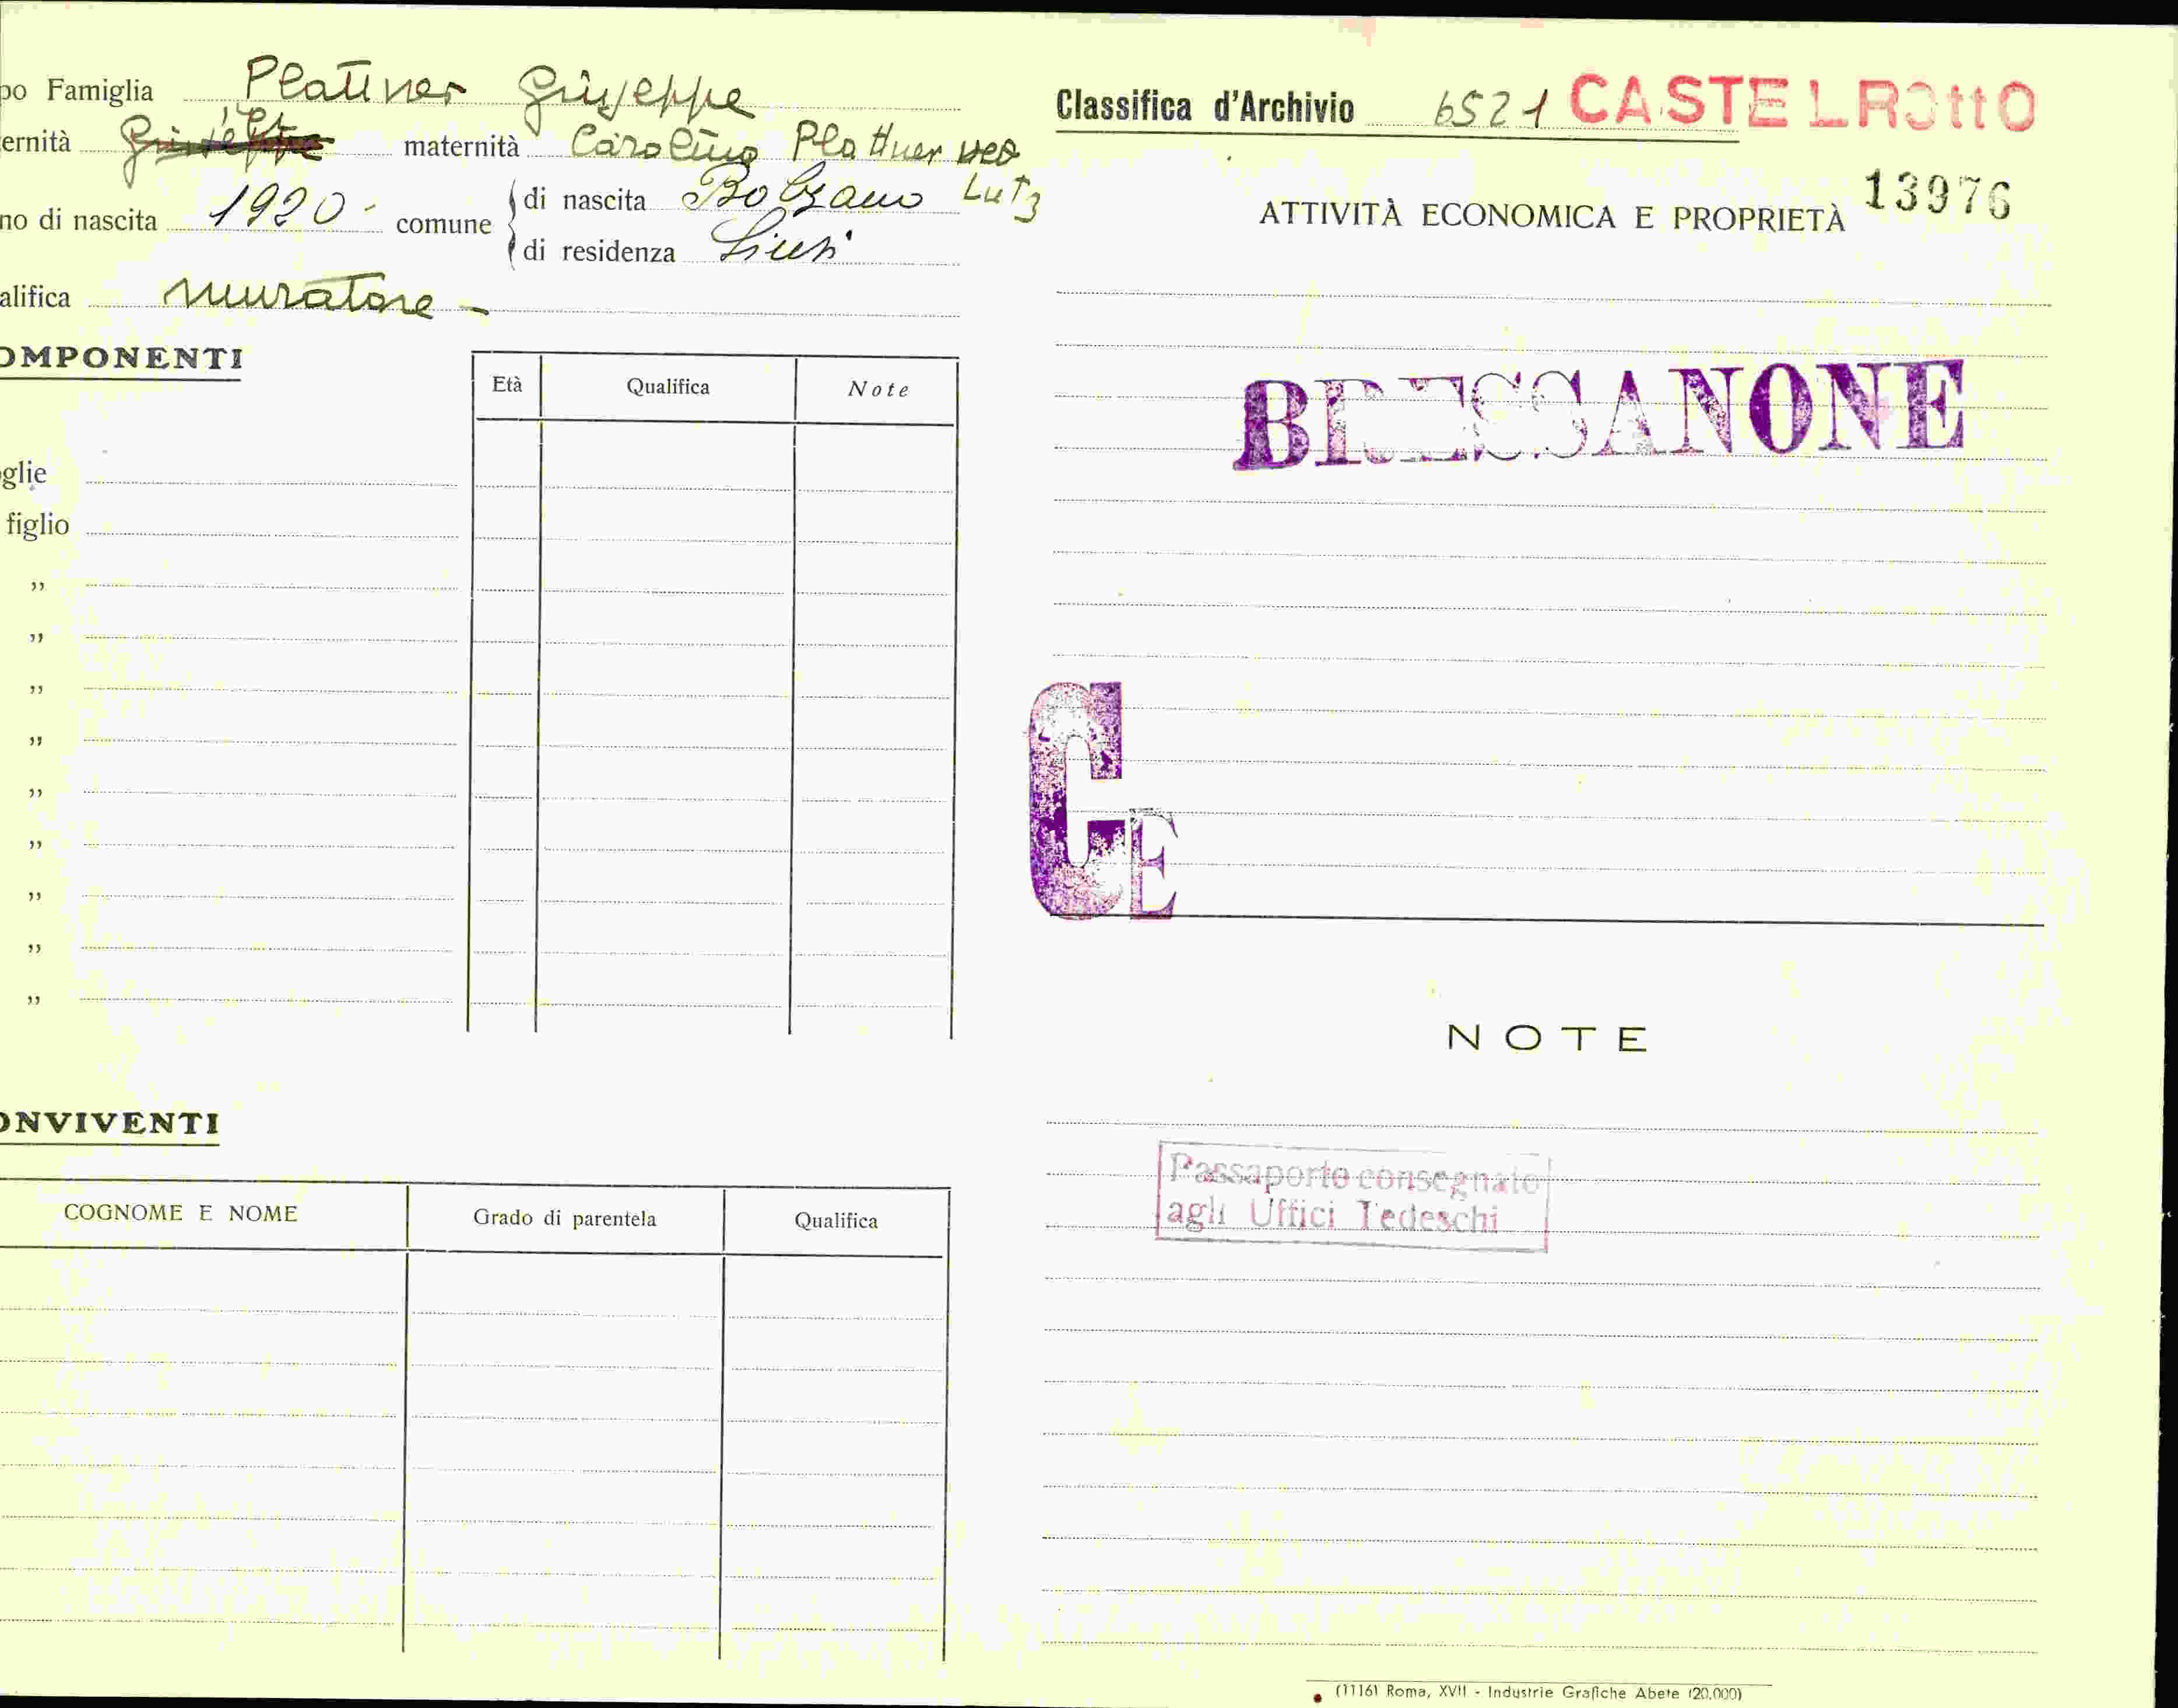 po Famiglia Plattner Giuseppe
ernità Giuseppe maternità Carolina Plattner ved
Lutz
no di nascita 1920 - comune di nascita Bolzano
di residenza Siusi
alifica muratore -
OMPONENTI
Età Qualifica Note
glie
figlio
”
”
”
”
”
”
”
”
”
ONVIVENTI
COGNOME E NOME Grado di parentela Qualifica
Classifica d'Archivio 6521 CASTELROttO
13976
ATTIVITÀ ECONOMICA E PROPRIETÀ
BRESSANONE
CE
NOTE
Passaporto consegnato
agli Uffici Tedeschi
(11161 Roma, XVII - Industrie Grafiche Abete (20.000)